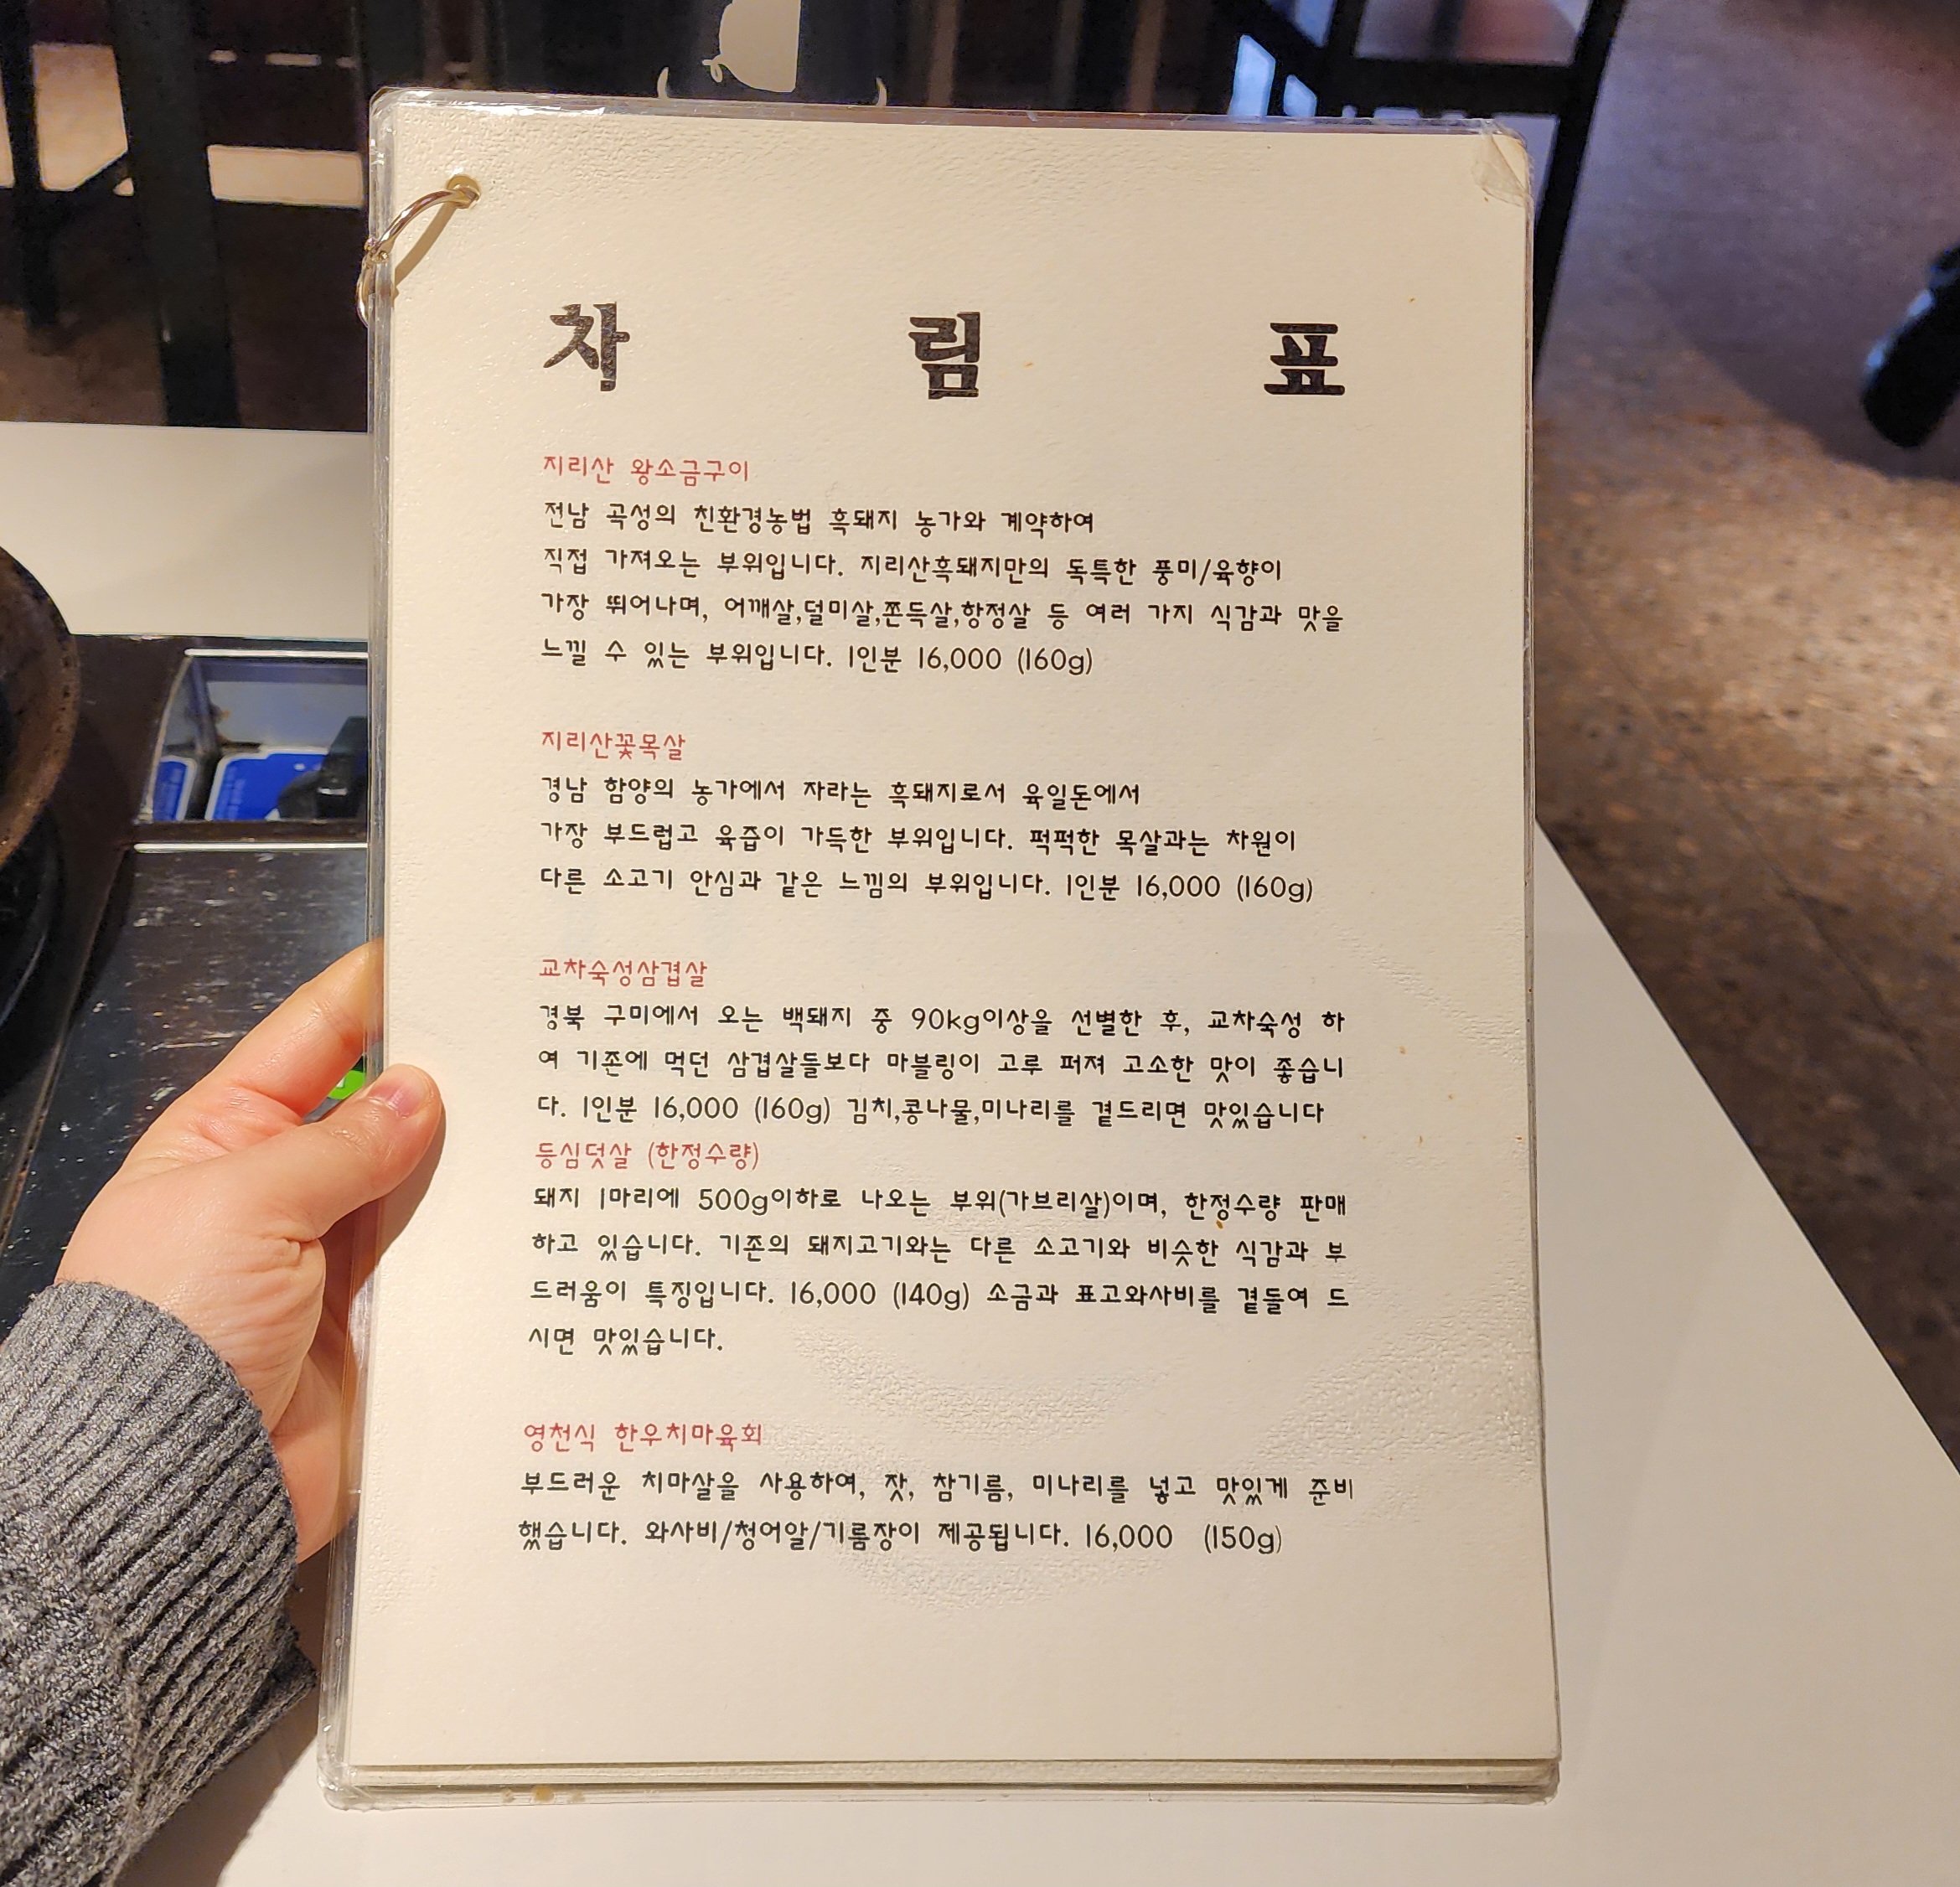 차 림 표
지리산 왕소금구이
전남 곡성의 친환경농법 흑돼지 농가와 계약하여
직접 가져오는 부위입니다. 지리산흑돼지만의 독특한 풍미/육향이
가장 뛰어나며, 어깨살,덜미살,쫀득살,항정살 등 여러 가지 식감과 맛을
느낄 수 있는 부위입니다. 1인분 16,000 (160g)
지리산꽃목살
경남 함양의 농가에서 자라는 흑돼지로서 육일돈에서
가장 부드럽고 육즙이 가득한 부위입니다. 퍽퍽한 목살과는 차원이
다른 소고기 안심과 같은 느낌의 부위입니다. 1인분 16,000 (160g)
교차숙성삼겹살
경북 구미에서 오는 백돼지 중 90kg이상을 선별한 후, 교차숙성 하
여 기존에 먹던 삼겹살들보다 마블링이 고루 퍼져 고소한 맛이 좋습니
다. 1인분 16,000 (160g) 김치,콩나물,미나리를 곁드리면 맛있습니다
등심덧살 (한정수량)
돼지 1마리에 500g이하로 나오는 부위(가브리살)이며, 한정수량 판매
하고 있습니다. 기존의 돼지고기와는 다른 소고기와 비슷한 식감과 부
드러움이 특징입니다. 16,000 (140g) 소금과 표고와사비를 곁들여 드
시면 맛있습니다.
영천식 한우치마육회
부드러운 치마살을 사용하여, 잣, 참기름, 미나리를 넣고 맛있게 준비
했습니다. 와사비/청어알/기름장이 제공됩니다. 16,000 (150g)